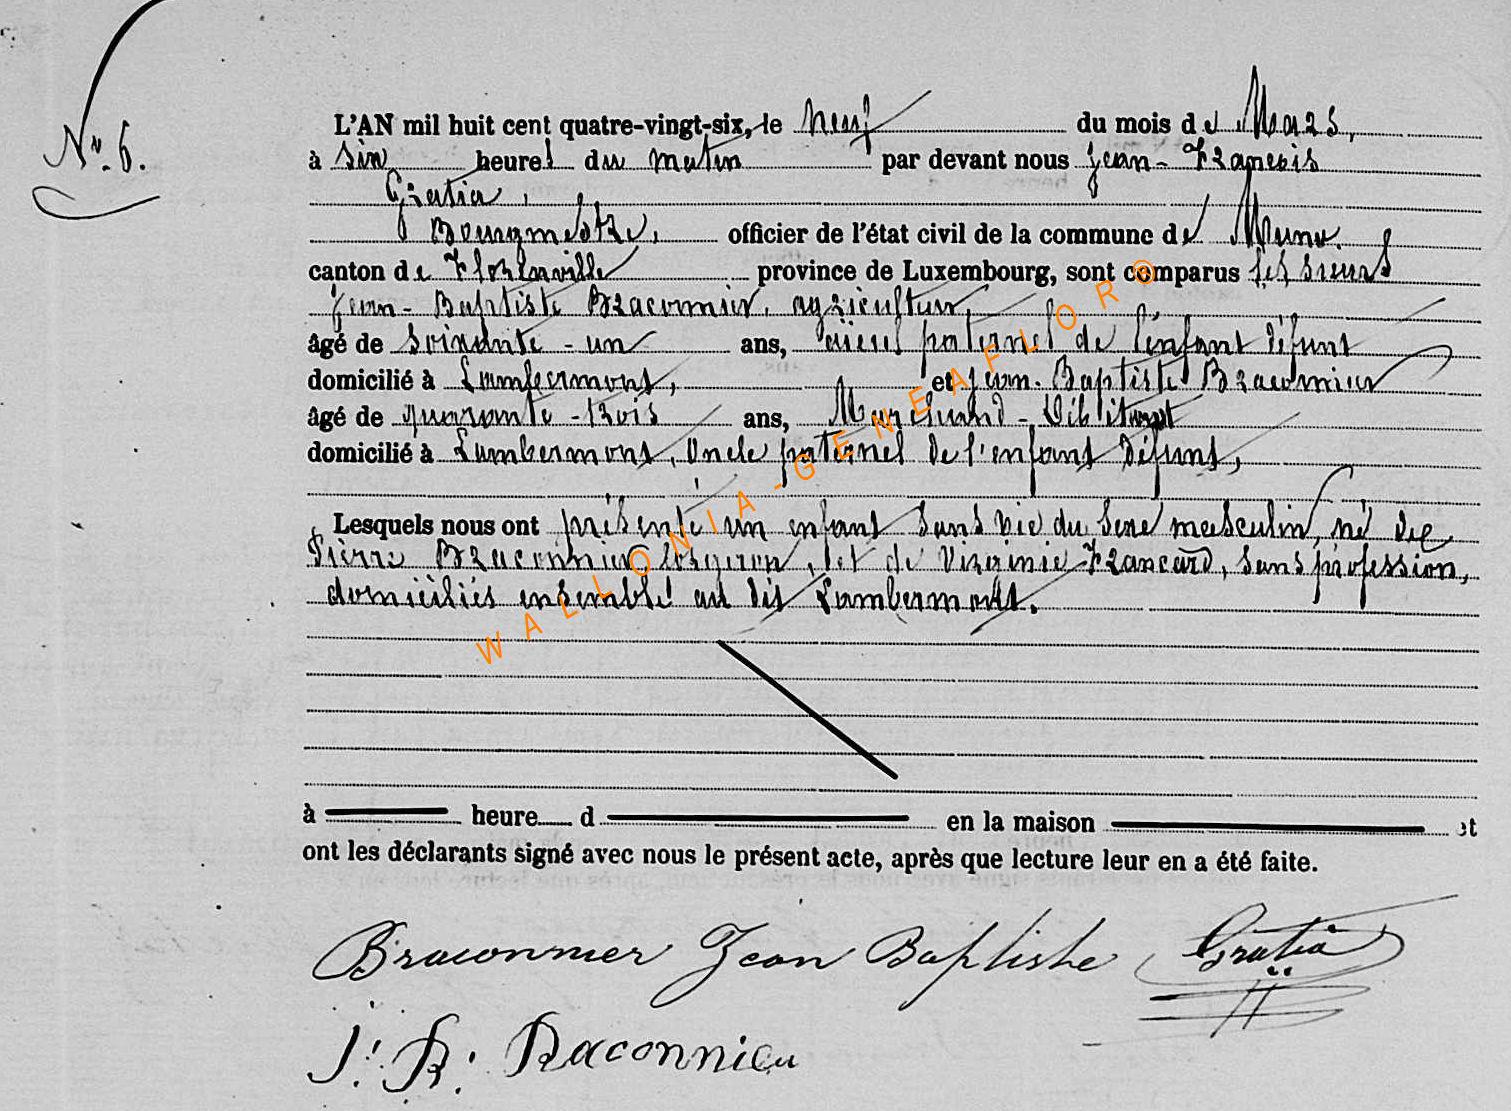 N°. 6.
L'AN mil huit cent quatre-vingt-six, le neuf du mois de Mars,
à six heures du matin par devant nous Jean-François
Gratia,
Bourgmestre, officier de l'état civil de la commune de Muno.
canton de Florenville province de Luxembourg, sont comparus les sieurs
Jean-Baptiste Braconnier, agriculteur,
âgé de soixante-un ans, aïeul paternel de l'enfant défunt
domicilié à Lambermont, et Jean-Baptiste Braconnier
âgé de quarante-trois ans, Marchand-Débitant
domicilié à Lambermont, Oncle paternel de l'enfant défunt,
Lesquels nous ont présenté un enfant sans vie du sexe masculin, né de
Pierre Braconnier, et de Virginie Francard, sans profession,
domiciliés ensemble au dit Lambermont.
à heure d en la maison et
ont les déclarants signé avec nous le présent acte, après que lecture leur en a été faite.
Braconnier Jean Baptiste Gratia
J. B. Braconnier
WALLONIA-GENEAFLOR®